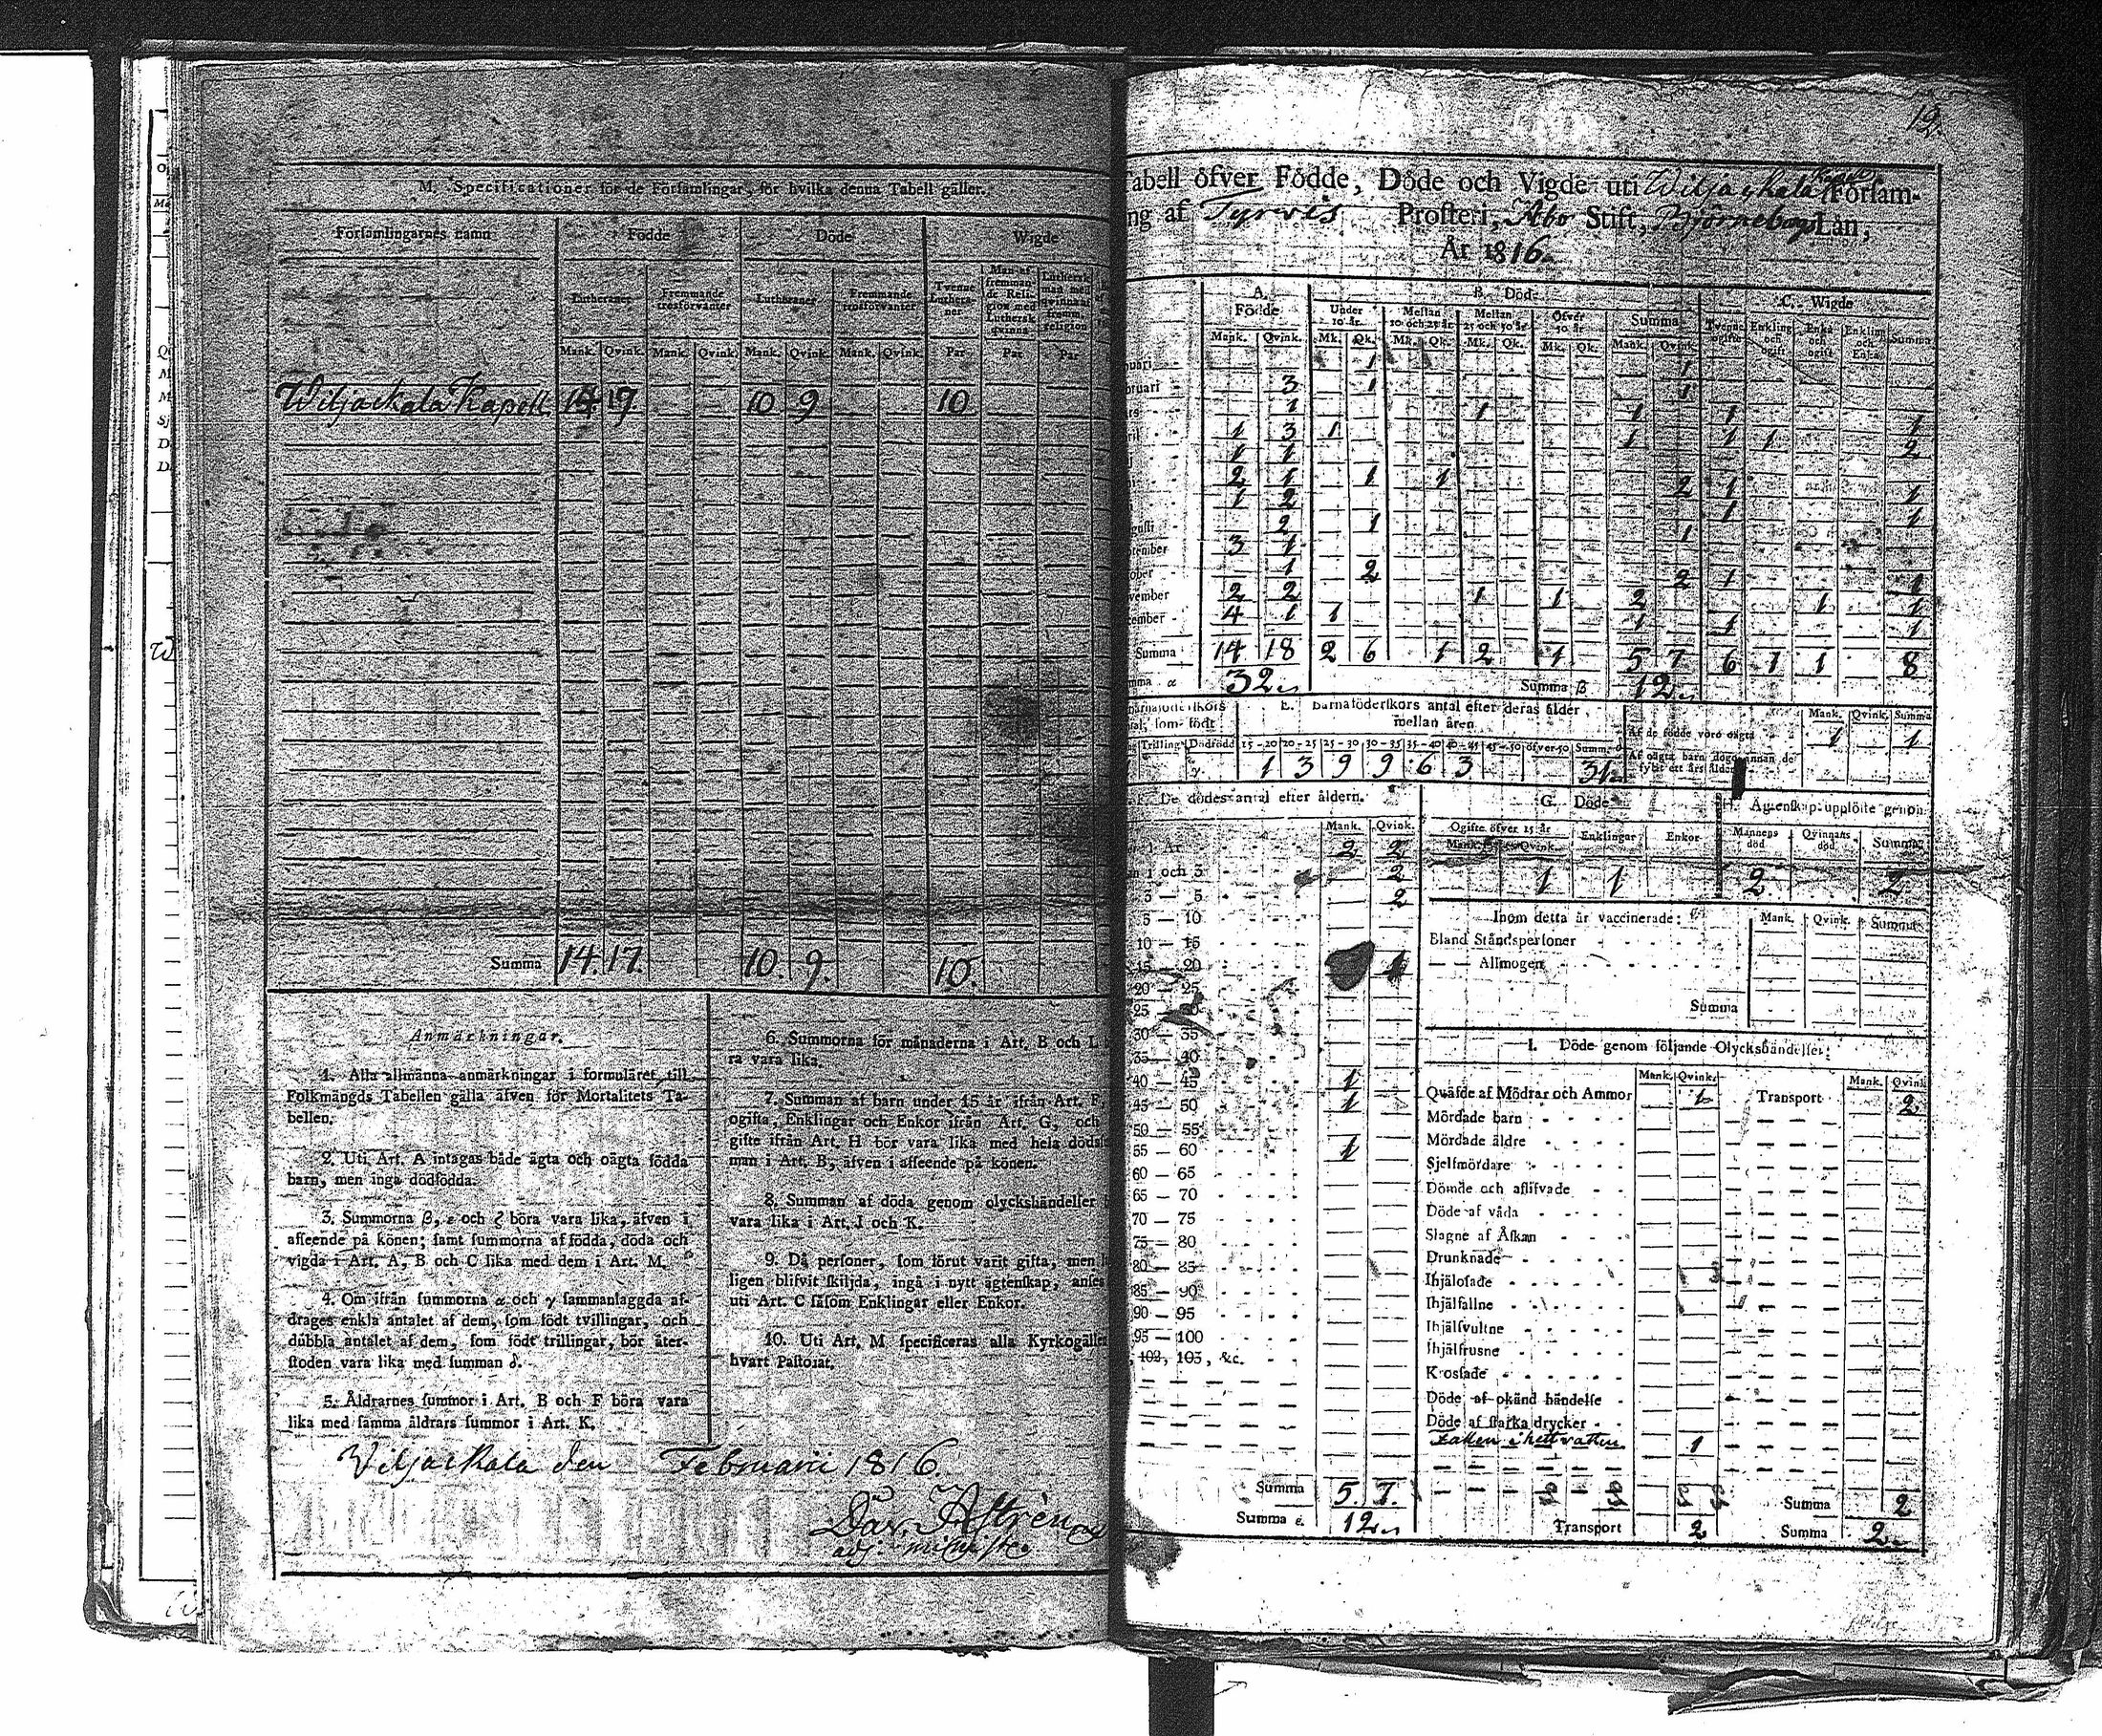 M. Specificationer för de Församlingar, för hvilka denna Tabell gäller.
Församlingarnes namn Födde Döde Wigde
Lutheraner Fremmande trosförvanter Lutheraner Fremmande trosförvanter Tvenne Lutheraner Man af fremmande Religion med Luthersk qvinna Luthersk man med qvinna af fremm. religion
Mank. Qvink. Mank. Qvink. Mank. Qvink. Mank. Qvink. Par Par Par
Wiljackala Kapell 14 17 10 9 10
Summa 14. 17. 10. 9. 10.
Anmärkningar.
1. Alla allmänna anmärkningar i formuläret till
Folkmängds Tabellen gälla äfven för Mortalitets Ta-
bellen.
2. Uti Art. A intagas både ägta och oägta födda
barn, men inga dödfödda.
3. Summorna β, ε och ζ böra vara lika, äfven i
afseende på könen; samt summorna af födda, döda och
vigda i Art. A, B och C lika med dem i Art. M.
4. Om ifrån summorna α och γ sammanlaggda af-
drages enkla antalet af dem, som födt tvillingar, och
dubbla antalet af dem, som födt trillingar, bör åter-
stoden vara lika med summan δ.
5. Åldrarnes summor i Art. B och F böra vara
lika med samma åldrars summor i Art. K.
6. Summorna för månaderna i Art. B och L
ra vara lika.
7. Summan af barn under 15 år ifrån Art. F,
ogifta, Enklingar och Enkor ifrån Art. G, och
gifte ifrån Art. H bör vara lika med hela döds
man i Art. B, äfven i afseende på könen.
8. Summan af döda genom olyckshändelser
vara lika i Art. I och K.
9. Då personer, som förut varit gifta, men
ligen blifvit skiljda, ingå i nytt ägtenskap, anses
uti Art. C såsom Enklingar eller Enkor.
10. Uti Art. M specificeras alla Kyrkogälle
hvart Pastorat.
Wiljackala den Februarii 1816.
Dav. Astrén
adj. minister
12.
Tabell öfver Födde, Döde och Vigde uti Wiljackala Kapell Församl-
ng af Tyrvis Prosteri, Åbo Stift, Björneborgs Län,
År 1816.
A. Födde B. Döde C. Wigde
Under 10 år. Mellan 10 och 25 år Mellan 25 och 50 år Öfver 50 år Summa Tvenne ogifte Enkling och ogift Enka och ogift Enkling och Enka Summa
Mank. Qvink. Mk. Qk. Mk. Qk. Mk. Qk. Mk. Qk. Mank. Qvink.
nuari 1 1
bruari 3 1 1
1 1 1 1 1
ril 1 3 1 1 1 1 2
1 1
2 1 1 1 2 1 1
1 2 1 1
gusti 2 1 1
ptember 3 1
ober 1 2 2 1 1
vember 2 2 1 1 2 1 1
cember 4 1 1 1 1 1
Summa 14 18 2 6 1 2 1 5 7 6 1 1 8
mma α 32 Summa β 12
E. Barnaföderskors antal efter deras ålder
mellan åren
Trilling Dödfödd 15-20 20-25 25-30 30-35 35-40 40-45 45-50 öfver 50 Summa
1 3 9 9 6 3 31
Mank. Qvink. Summa
Af de födde voro oägta 1 1
Af oägta barn dögo innan de
fyllt ett års ålder
F. De dödes antal efter åldern.
Mank. Qvink.
1 År 2 2
1 och 3 2
3 — 5 2
5 — 10
10 — 15
15 — 20 1
20 — 25
25 30
30 — 35
35 — 40
40 — 45 1
45 — 50 1
50 — 55
55 — 60 1
60 — 65
65 — 70
70 — 75
75 — 80
80 — 85
85 — 90
90 — 95
95 — 100
102, 103, &c.
Summa 5. 7.
Summa ε. 12
G. Döde
Ogifte öfver 15 år Enklingar Enkor
Mank. Qvink.
1 1
H. Ägtenskap upplöste genom
Mannens död Qvinnans död Summa
2 2
Inom detta år vaccinerade: Mank. Qvink. Summa
Bland Ståndspersoner
— — Allmogen
Summa
I. Döde genom följande Olyckshändelser:
Mank. Qvink. Mank. Qvink
Quäfde af Mödrar och Ammor 1 Transport 2
Mördade barn
Mördade äldre
Sjelfmördare
Dömde och aflifvade
Döde af våda
Slagne af Åskan
Drunknade
Ihjälosade
Ihjälfallne
Ihjälsvultne
Ihjälfrusne
Krossade
Döde af okänd händelse
Döde af starka drycker
Fallen i hett vatten 1
Summa 2
Transport 2 Summa 2